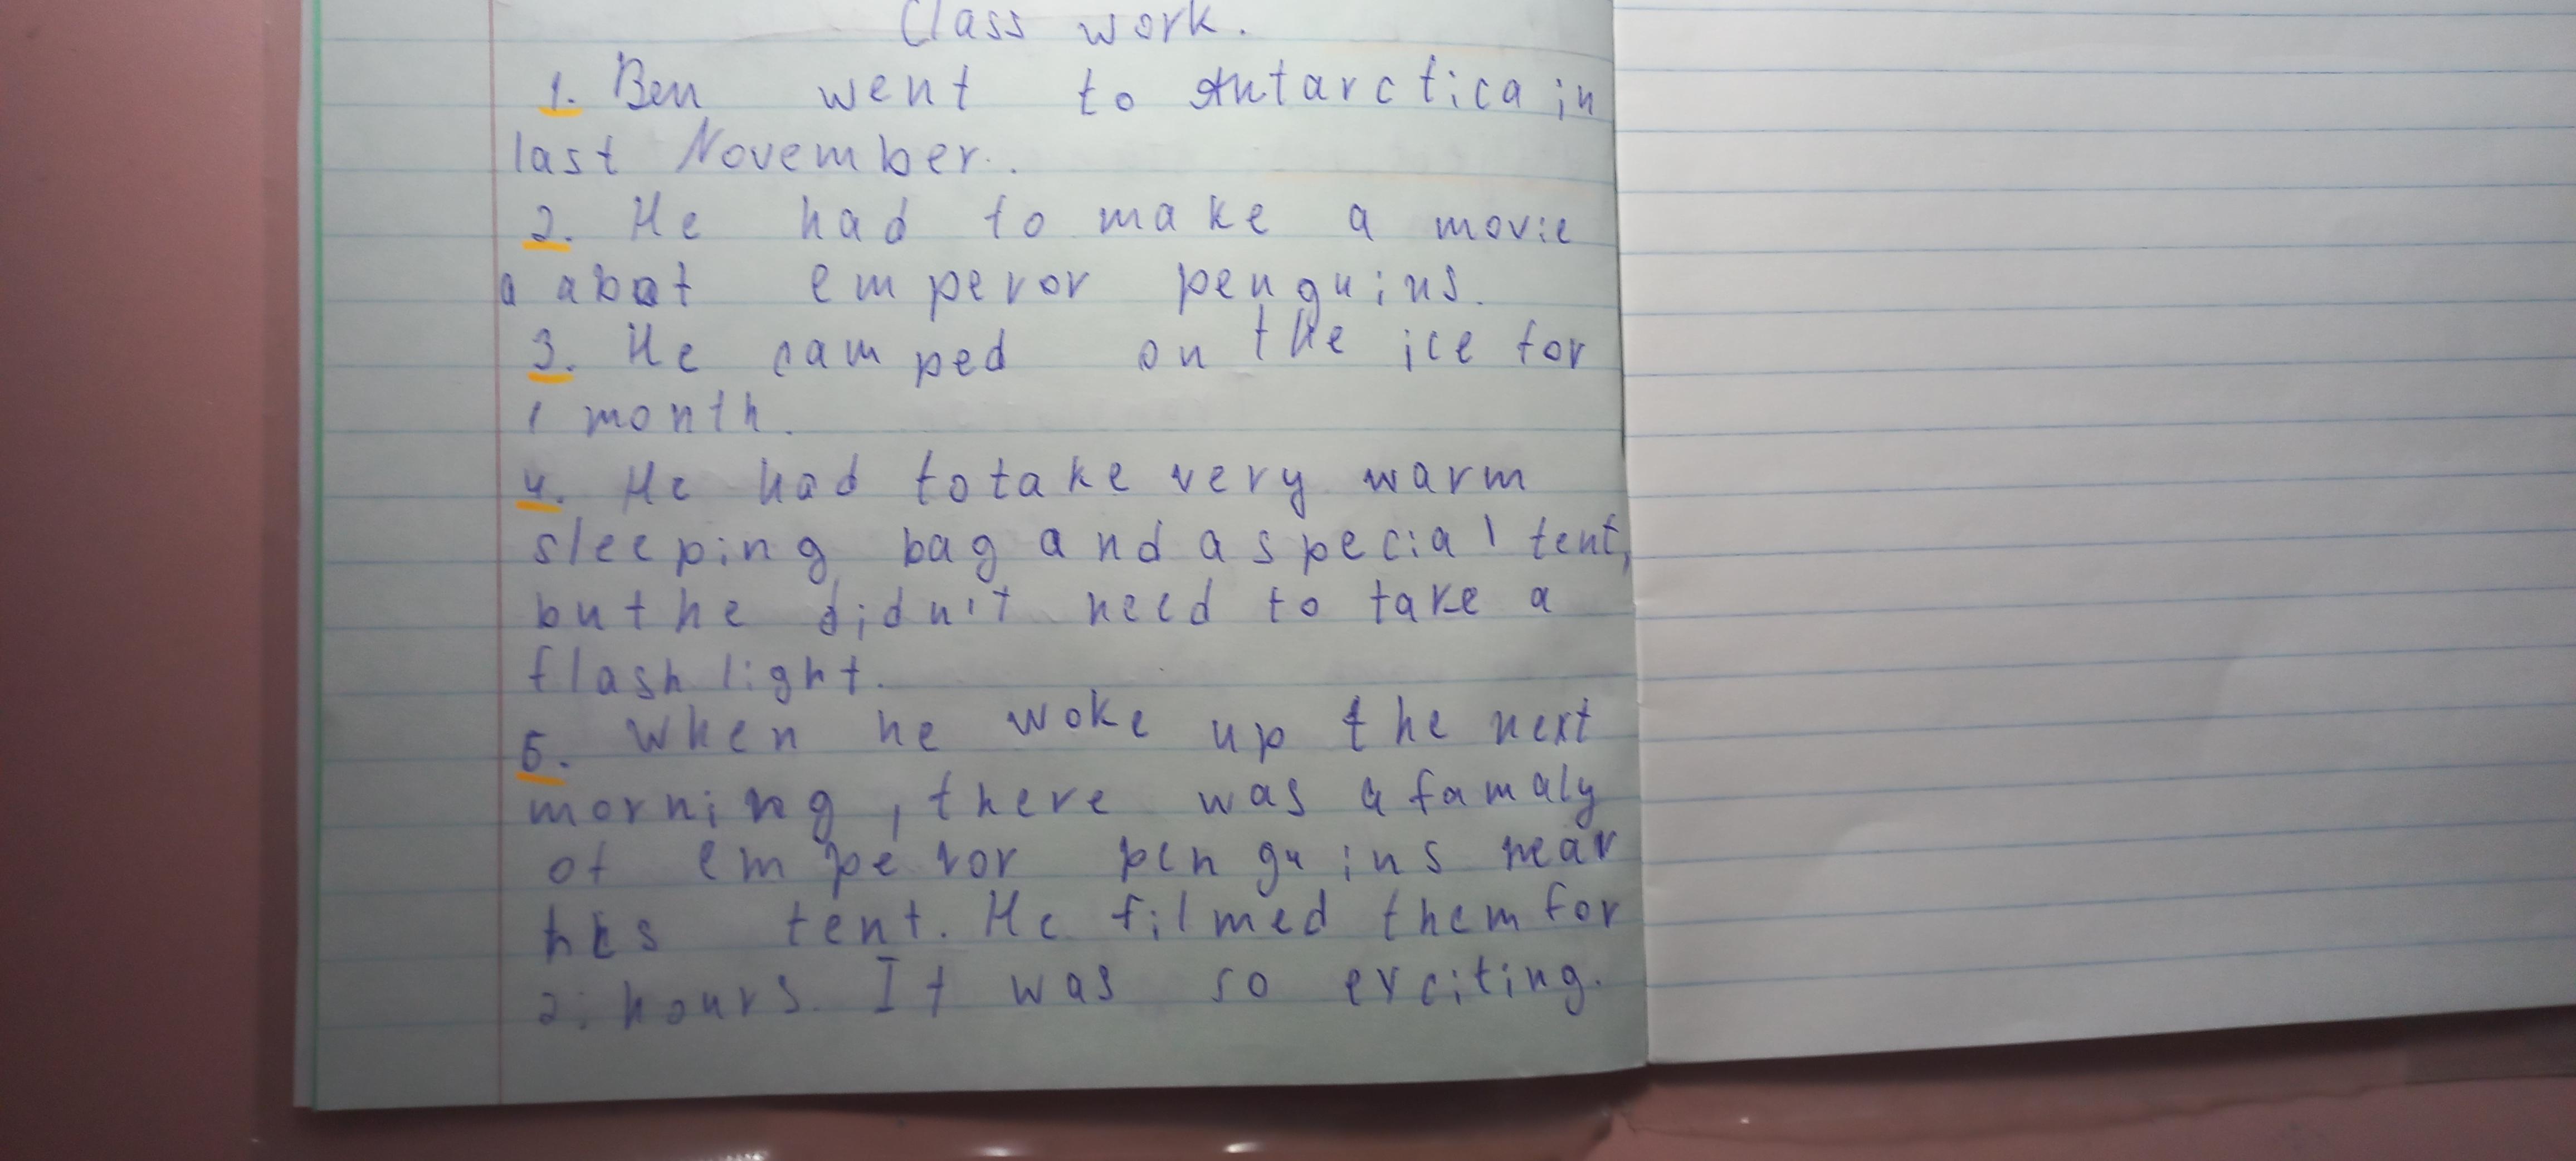 Class work.
1. Ben went to Antarctica in
last November.
2. He had to make a movie
a abot emperor penguins.
3. He camped on the ice for
1 month.
4. He had to take very warm
sleeping bag and a special tent,
but he didn't need to take a
flash light.
5. When he woke up the next
morning, there was a famaly
of emperor penguins near
his tent. He filmed them for
2. hours. It was so exciting.